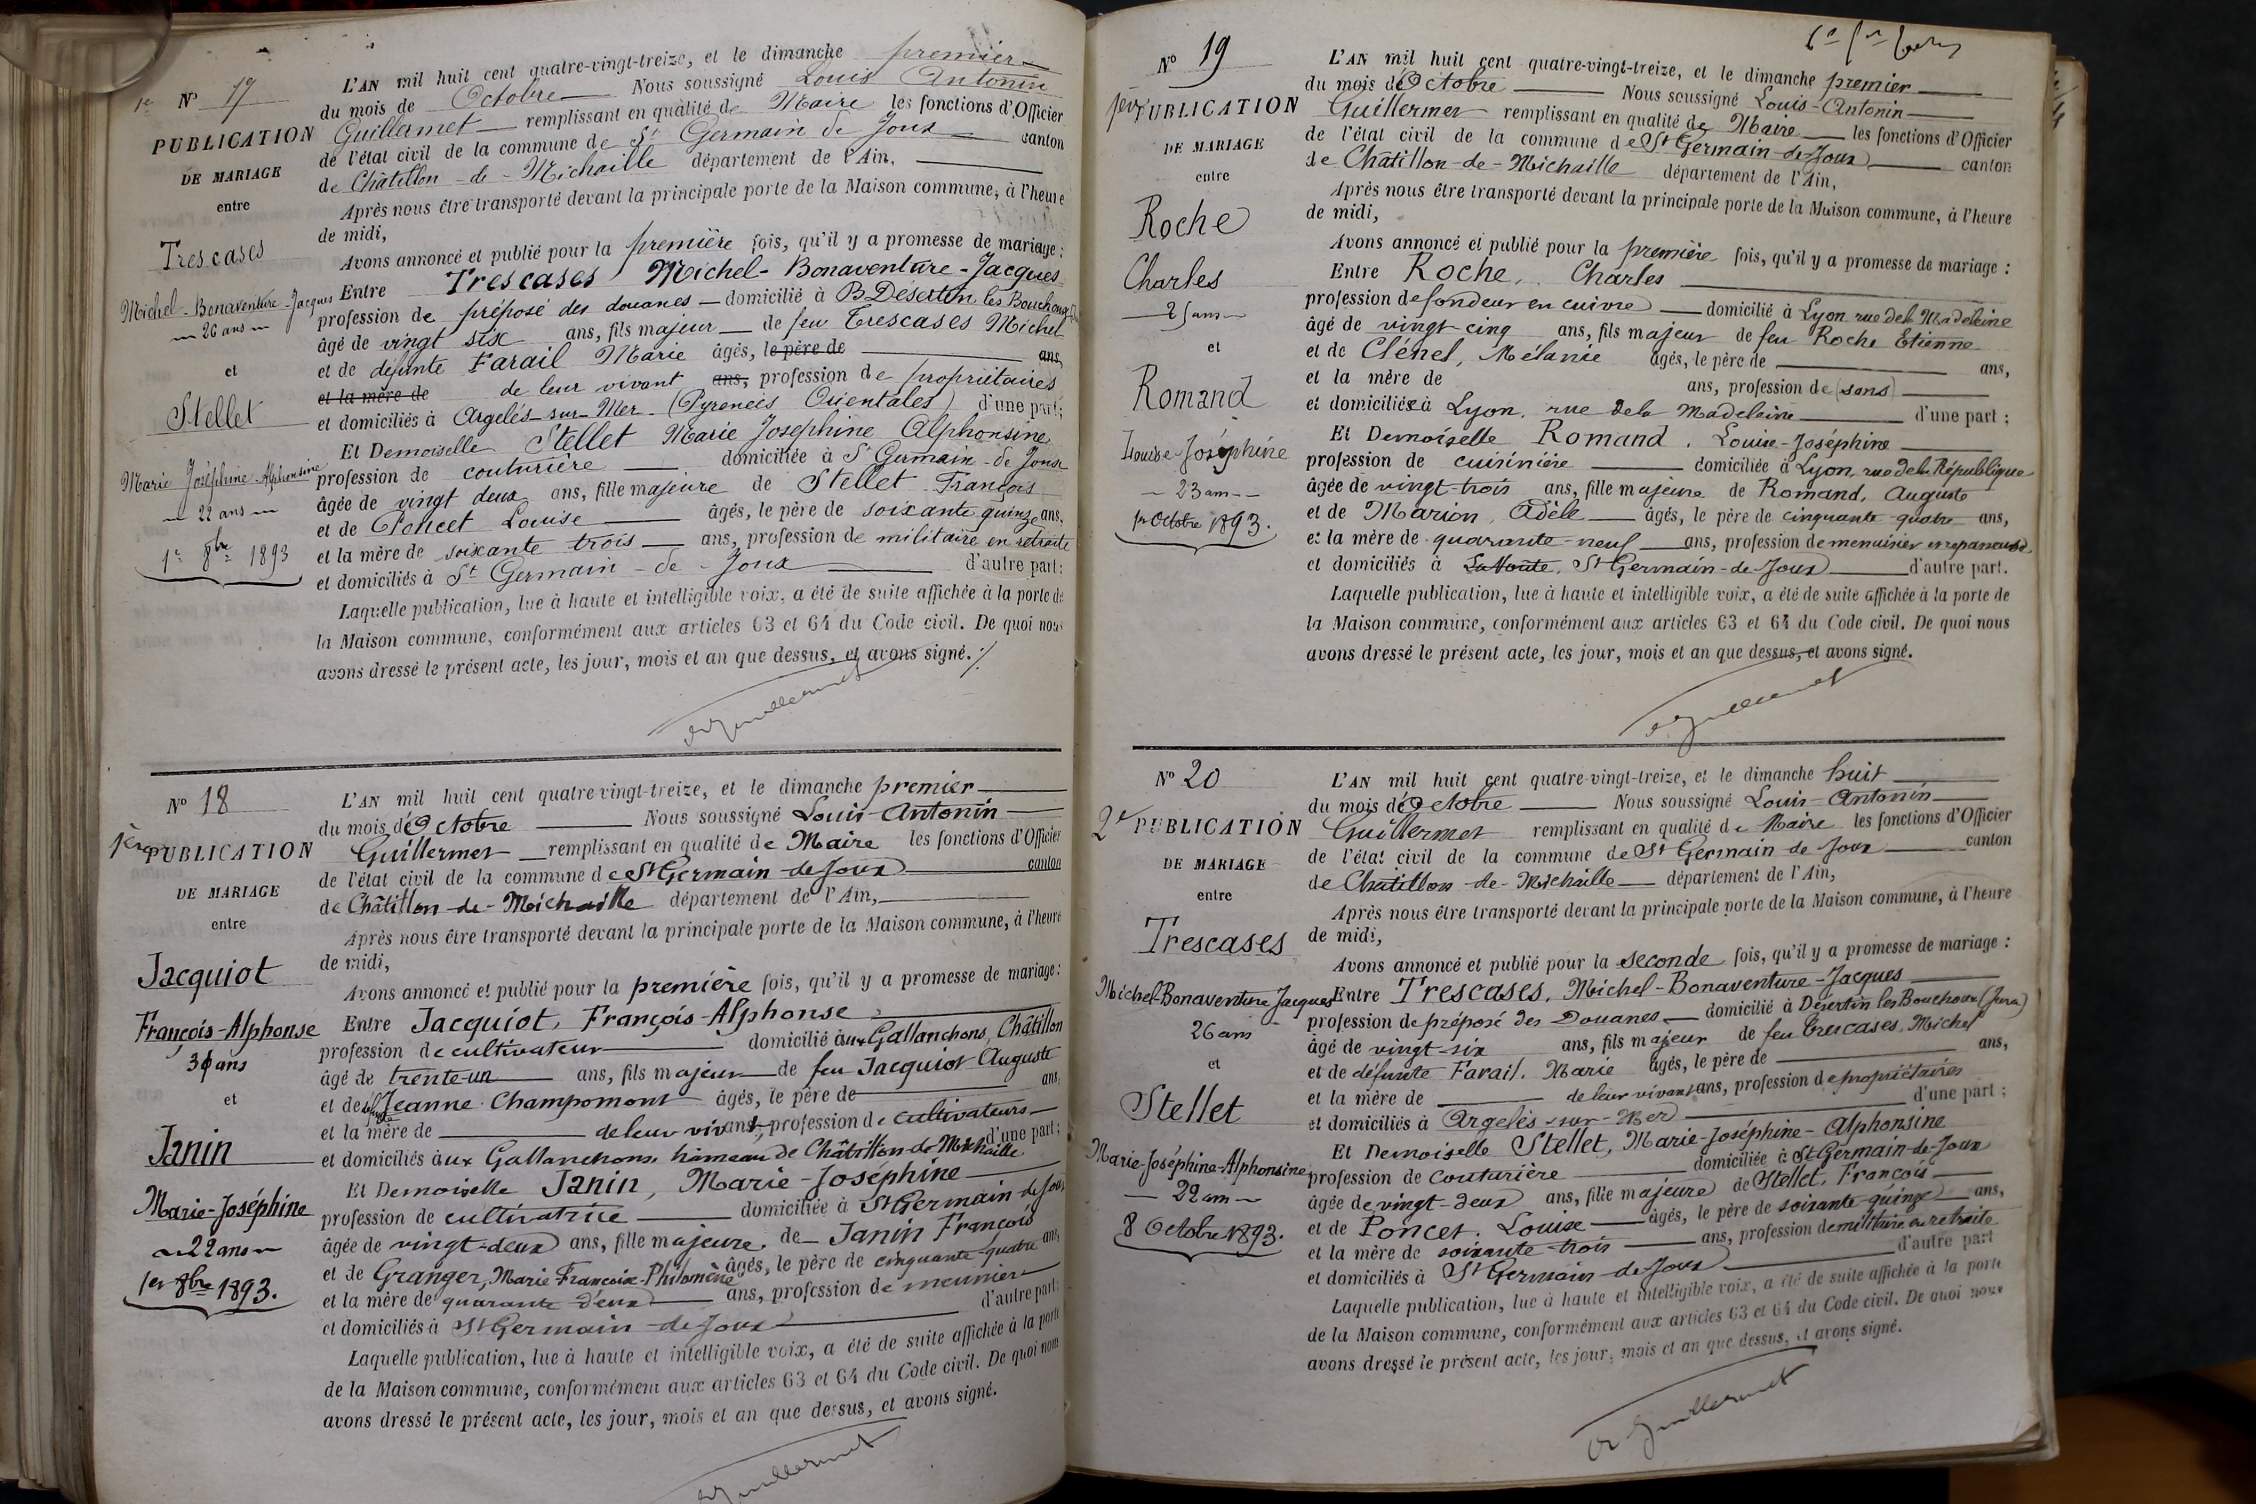 1re
Nº 17
PUBLICATION
DE MARIAGE
entre
Trescases
Michel-Bonaventure-Jacques
26 ans
et
Stellet
Marie Joséphine Alphonsine
22 ans
1er 8bre 1893
L'AN mil huit cent quatre-vingt-treize, et le dimanche premier
du mois de Octobre Nous soussigné Louis Antonin
Guillermet remplissant en qualité de Maire les fonctions d'Officier
de l'état civil de la commune de St Germain de Joux canton
de Châtillon-de-Michaille département de l'Ain,
Après nous être transporté devant la principale porte de la Maison commune, à l'heure
de midi,
Avons annoncé et publié pour la première fois, qu'il y a promesse de mariage :
Entre Trescases Michel-Bonaventure-Jacques
profession de préposé des douanes domicilié à Désertin les Bouchoux
âgé de vingt six ans, fils majeur de feu Trescases Michel
et de défunte Farail Marie âgés, le père de ans,
et la mère de de leur vivant ans, profession de propriétaires
et domiciliés à Argelès-sur-Mer (Pyreneés Orientales) d'une part;
Et Demoiselle Stellet Marie Josephine Alphonsine
profession de couturière domiciliée à St Germain-de-Joux
âgée de vingt deux ans, fille majeure de Stellet François
et de Poncet Louise âgés, le père de soixante quinze ans,
et la mère de soixante trois ans, profession de militaire en retraite
et domiciliés à St Germain-de-Joux d'autre part:
Laquelle publication, lue à haute et intelligible voix, a été de suite affichée à la porte de
la Maison commune, conformément aux articles 63 et 64 du Code civil. De quoi nous
avons dressé le présent acte, les jour, mois et an que dessus, et avons signé.
Guillermet
Nº 18
1ère PUBLICATION
DE MARIAGE
entre
Jacquiot
François-Alphonse
31 ans
et
Janin
Marie-Joséphine
22 ans
1er 8bre 1893.
L'AN mil huit cent quatre-vingt-treize, et le dimanche premier
du mois d'Octobre Nous soussigné Louis-Antonin
Guillermet remplissant en qualité de Maire les fonctions d'Officier
de l'état civil de la commune de St Germain-de-Joux canton
de Châtillon-de-Michaille département de l'Ain,
Après nous être transporté devant la principale porte de la Maison commune, à l'heure
de midi,
Avons annoncé et publié pour la première fois, qu'il y a promesse de mariage:
Entre Jacquiot, François-Alphonse
profession de cultivateur domicilié aux Gallanchons, Châtillon
âgé de trente-un ans, fils majeur de feu Jacquiot Auguste
et de défte Jeanne Champomont âgés, le père de ans,
et la mère de de leur vivant, profession de cultivateurs
et domiciliés aux Gallanchons, hameau de Châtillon-de-Michaille d'une part;
Et Demoiselle Janin, Marie-Joséphine
profession de cultivatrice domiciliée à St Germain-de-Joux
âgée de vingt-deux ans, fille majeure de Janin François
et de Granger, Marie Françoise-Philomène âgés, le père de cinquante-quatre ans,
et la mère de quarante deux ans, profession de meunier
et domiciliés à St Germain-de-Joux d'autre part:
Laquelle publication, lue à haute et intelligible voix, a été de suite affichée à la porte
de la Maison commune, conformément aux articles 63 et 64 du Code civil. De quoi nous
avons dressé le présent acte, les jour, mois et an que dessus, et avons signé.
Guillermet
Nº 19
1ère PUBLICATION
DE MARIAGE
entre
Roche
Charles
25 ans
et
Romand
Louise-Joséphine
23 ans
1er Octobre 1893.
L'AN mil huit cent quatre-vingt-treize, et le dimanche premier
du mois d'Octobre Nous soussigné Louis-Antonin
Guillermet remplissant en qualité de Maire les fonctions d'Officier
de l'état civil de la commune de St Germain-de-Joux canton
de Châtillon-de-Michaille département de l'Ain,
Après nous être transporté devant la principale porte de la Maison commune, à l'heure
de midi,
Avons annoncé et publié pour la première fois, qu'il y a promesse de mariage :
Entre Roche, Charles
profession de fondeur en cuivre domicilié à Lyon rue de la Madeleine
âgé de vingt-cinq ans, fils majeur de feu Roche Etienne
et de Clénel, Mélanie âgés, le père de ans,
et la mère de ans, profession de (sans)
et domiciliée à Lyon, rue de la Madeleine d'une part ;
Et Demoiselle Romand, Louise-Joséphine
profession de cuisinière domiciliée à Lyon, rue de la République
âgée de vingt-trois ans, fille majeure de Romand, Auguste
et de Marion, Adèle âgés, le père de cinquante-quatre ans,
et la mère de quarante-neuf ans, profession de menuisier
et domiciliés à St Germain-de-Joux d'autre part.
Laquelle publication, lue à haute et intelligible voix, a été de suite affichée à la porte de
la Maison commune, conformément aux articles 63 et 64 du Code civil. De quoi nous
avons dressé le présent acte, les jour, mois et an que dessus, et avons signé.
Guillermet
Nº 20
2e PUBLICATION
DE MARIAGE
entre
Trescases
Michel-Bonaventure Jacques
26 ans
et
Stellet
Marie-Joséphine-Alphonsine
22 ans
8 Octobre 1893.
L'AN mil huit cent quatre-vingt-treize, et le dimanche huit
du mois d'Octobre Nous soussigné Louis-Antonin
Guillermet remplissant en qualité de Maire les fonctions d'Officier
de l'état civil de la commune de St Germain-de-Joux canton
de Châtillon-de-Michaille département de l'Ain,
Après nous être transporté devant la principale porte de la Maison commune, à l'heure
de midi,
Avons annoncé et publié pour la seconde fois, qu'il y a promesse de mariage :
Entre Trescases, Michel-Bonaventure-Jacques
profession de préposé des Douanes domicilié à Désertin les Bouchoux (Jura)
âgé de vingt-six ans, fils majeur de feu Trescases, Michel
et de défunte Farail, Marie âgés, le père de ans,
et la mère de de leur vivant ans, profession de propriétaires
et domiciliés à Argelès-sur-Mer d'une part ;
Et Demoiselle Stellet, Marie-Joséphine-Alphonsine
profession de couturière domiciliée à St Germain-de-Joux
âgée de vingt-deux ans, fille majeure de Stellet, François
et de Poncet, Louise âgés, le père de soixante-quinze ans,
et la mère de soixante-trois ans, profession de militaire en retraite
et domiciliés à St Germain-de-Joux d'autre part
Laquelle publication, lue à haute et intelligible voix, a été de suite affichée à la porte
de la Maison commune, conformément aux articles 63 et 64 du Code civil. De quoi nous
avons dressé le présent acte, les jour, mois et an que dessus, et avons signé.
Guillermet